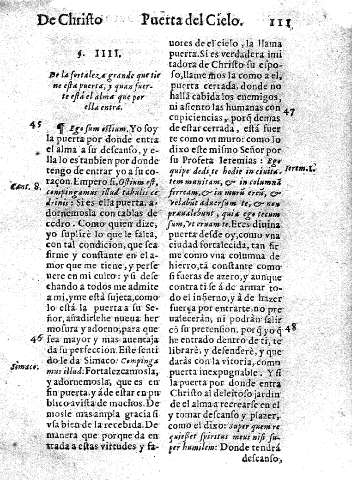 De Christo Puerta del Cielo. 111
§. IIII.
De la fortaleza grande que tie
ne esta puerta, y quan fuer-
te està el alma que por
ella entra.
45
¶ Ego sum ostium. Yo soy
la puerta por donde entra
el alma a su descanso, y e-
lla lo es tanbien por donde
tengo de entrar yo a su co-
raçon. Empero si, Ostium est,
Cant. 8.
compingamus illud tabulis ce
drinis: Si es ella puerta, a-
dornemosla con tablas de
cedro. Como quien dize,
yo suplirè lo que le falta,
con tal condicion, que sea
firme y constante en el a-
mor que me tiene, y perse
uere en mi culto: y si des-
echando a todos me admite
a mi, y me està sujeta, como
lo està la puerta a su Se-
ñor, añadirele nueua her
mosura y adorno, para que
46
sea mayor y mas auentaja
da su perfeccion. Este senti
Simaco.
do le da Simaco: Compinga
mus illud: Fortalezcamosla,
y adornemosla, que es en
fin puerta, y à de estar en pu
blico a vista de muchos. De
mosle mas ampla gracia si
vsa bien de la recebida. De
manera que porque da en-
trada a estas virtudes y fa-
uores de el cielo, la llama
puerta. Si es verdadera imi
tadora de Christo su espo-
so, llamemosla como a el,
puerta cerrada, donde no
halla cabida los enemigos,
ni assiento las humanas con
47
cupiciencias, porq̃ demas
de estar cerrada, està fuer
te como vn muro: como lo
dixo este mismo Señor por
su Profeta Ieremias: Ego
Ierem. 1.
quipe dedi te hodie in ciuita-
tem munitam, & in columnã
ferream, & in murũ ereũ, &
vellabũt aduersum te, & non
praualebunt, quia ego tecum
sum, vt eruam te. Eres diuina
puerta desde oy, como vna
ciudad fortalecida, tan fir
me como vna columna de
hierro, tã constante como
si fueras de azero, y aunque
contra ti se â de armar to-
do el infierno, y à de hazer
fuerça por entrarte. no pre
ualeceràn, ni podràn salir
cõ su pretension, porq̃ yo q̃
48
he entrado dentro de ti, te
librarè, y defenderè, y que
daràs con la vitoria, como
puerta inexpugnable. Y si
la puerta por donde entra
Christo al deleitoso jardin
de el alma a recrearse en el
y tomar descanso y plazer,
como el dixo: super quem re
quiescet spiritus meus nisi su-
per humilem: Donde tendrà
descanso,